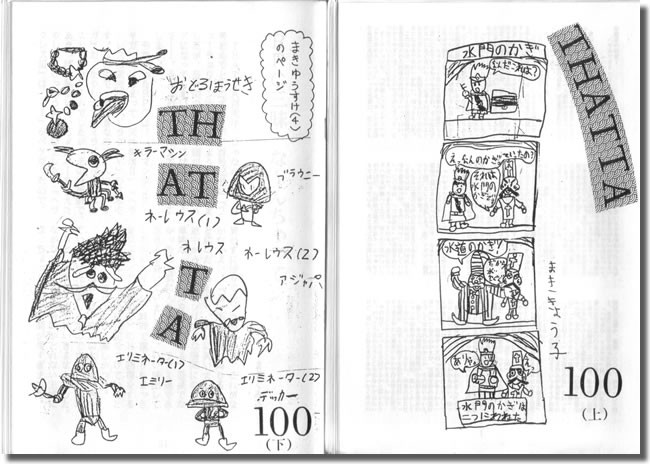 まきゆうすけ(4)
のページ
おどるほうせき
TH
AT
T
A
キラーマシン
ブラウニー
ネーレウス(1)
ネレウス
ネーレウス(2)
アジャパ
エリミネーター(1)
エミリー
エリミネーター(2)
デッカー
100
(下)
水門のかぎ
なんだこれは?
それは
水門の
かぎ
水道のかぎ!
水門のかぎは
二つにわれた
THATTA
まきこきょう子
100
(上)